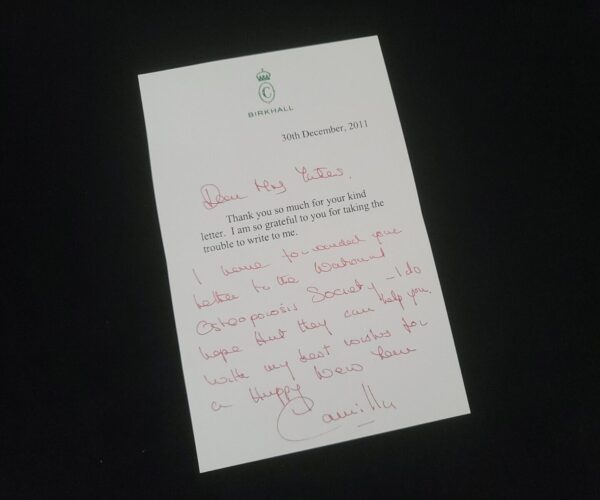 C
BIRKHALL
30th December, 2011
Dear Mrs
Thank you so much for your kind
letter. I am so grateful to you for taking the
trouble to write to me.
I have forwarded your
letter to the National
Osteoporosis Society – I do
hope that they can help you.
With my best wishes for
a Happy New Year
Camilla